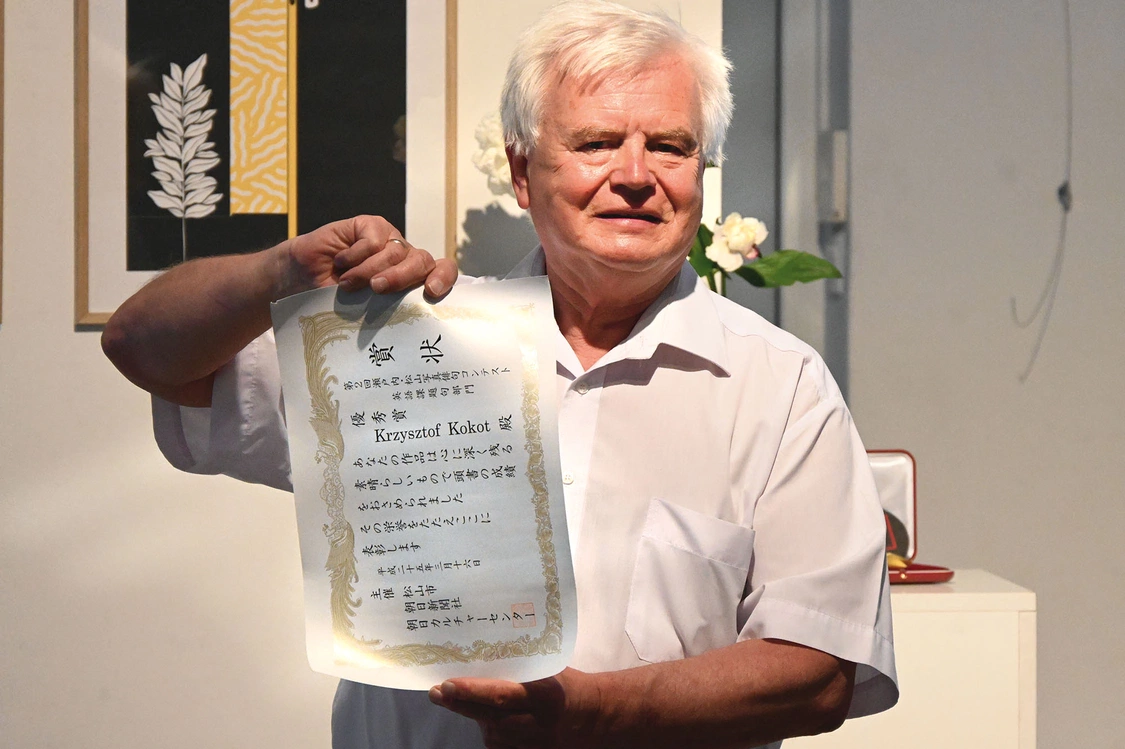 賞状
第2回瀬戸内・松山写真俳句コンテスト
英語課題句部門
優秀賞
Krzysztof Kokot 殿
あなたの作品は心に深く残る
素晴らしいもので頭書の成績
をおさめられました
その栄誉をたたえここに
表彰します
平成二十五年三月十六日
主催 松山市
朝日新聞社
朝日カルチャーセンター